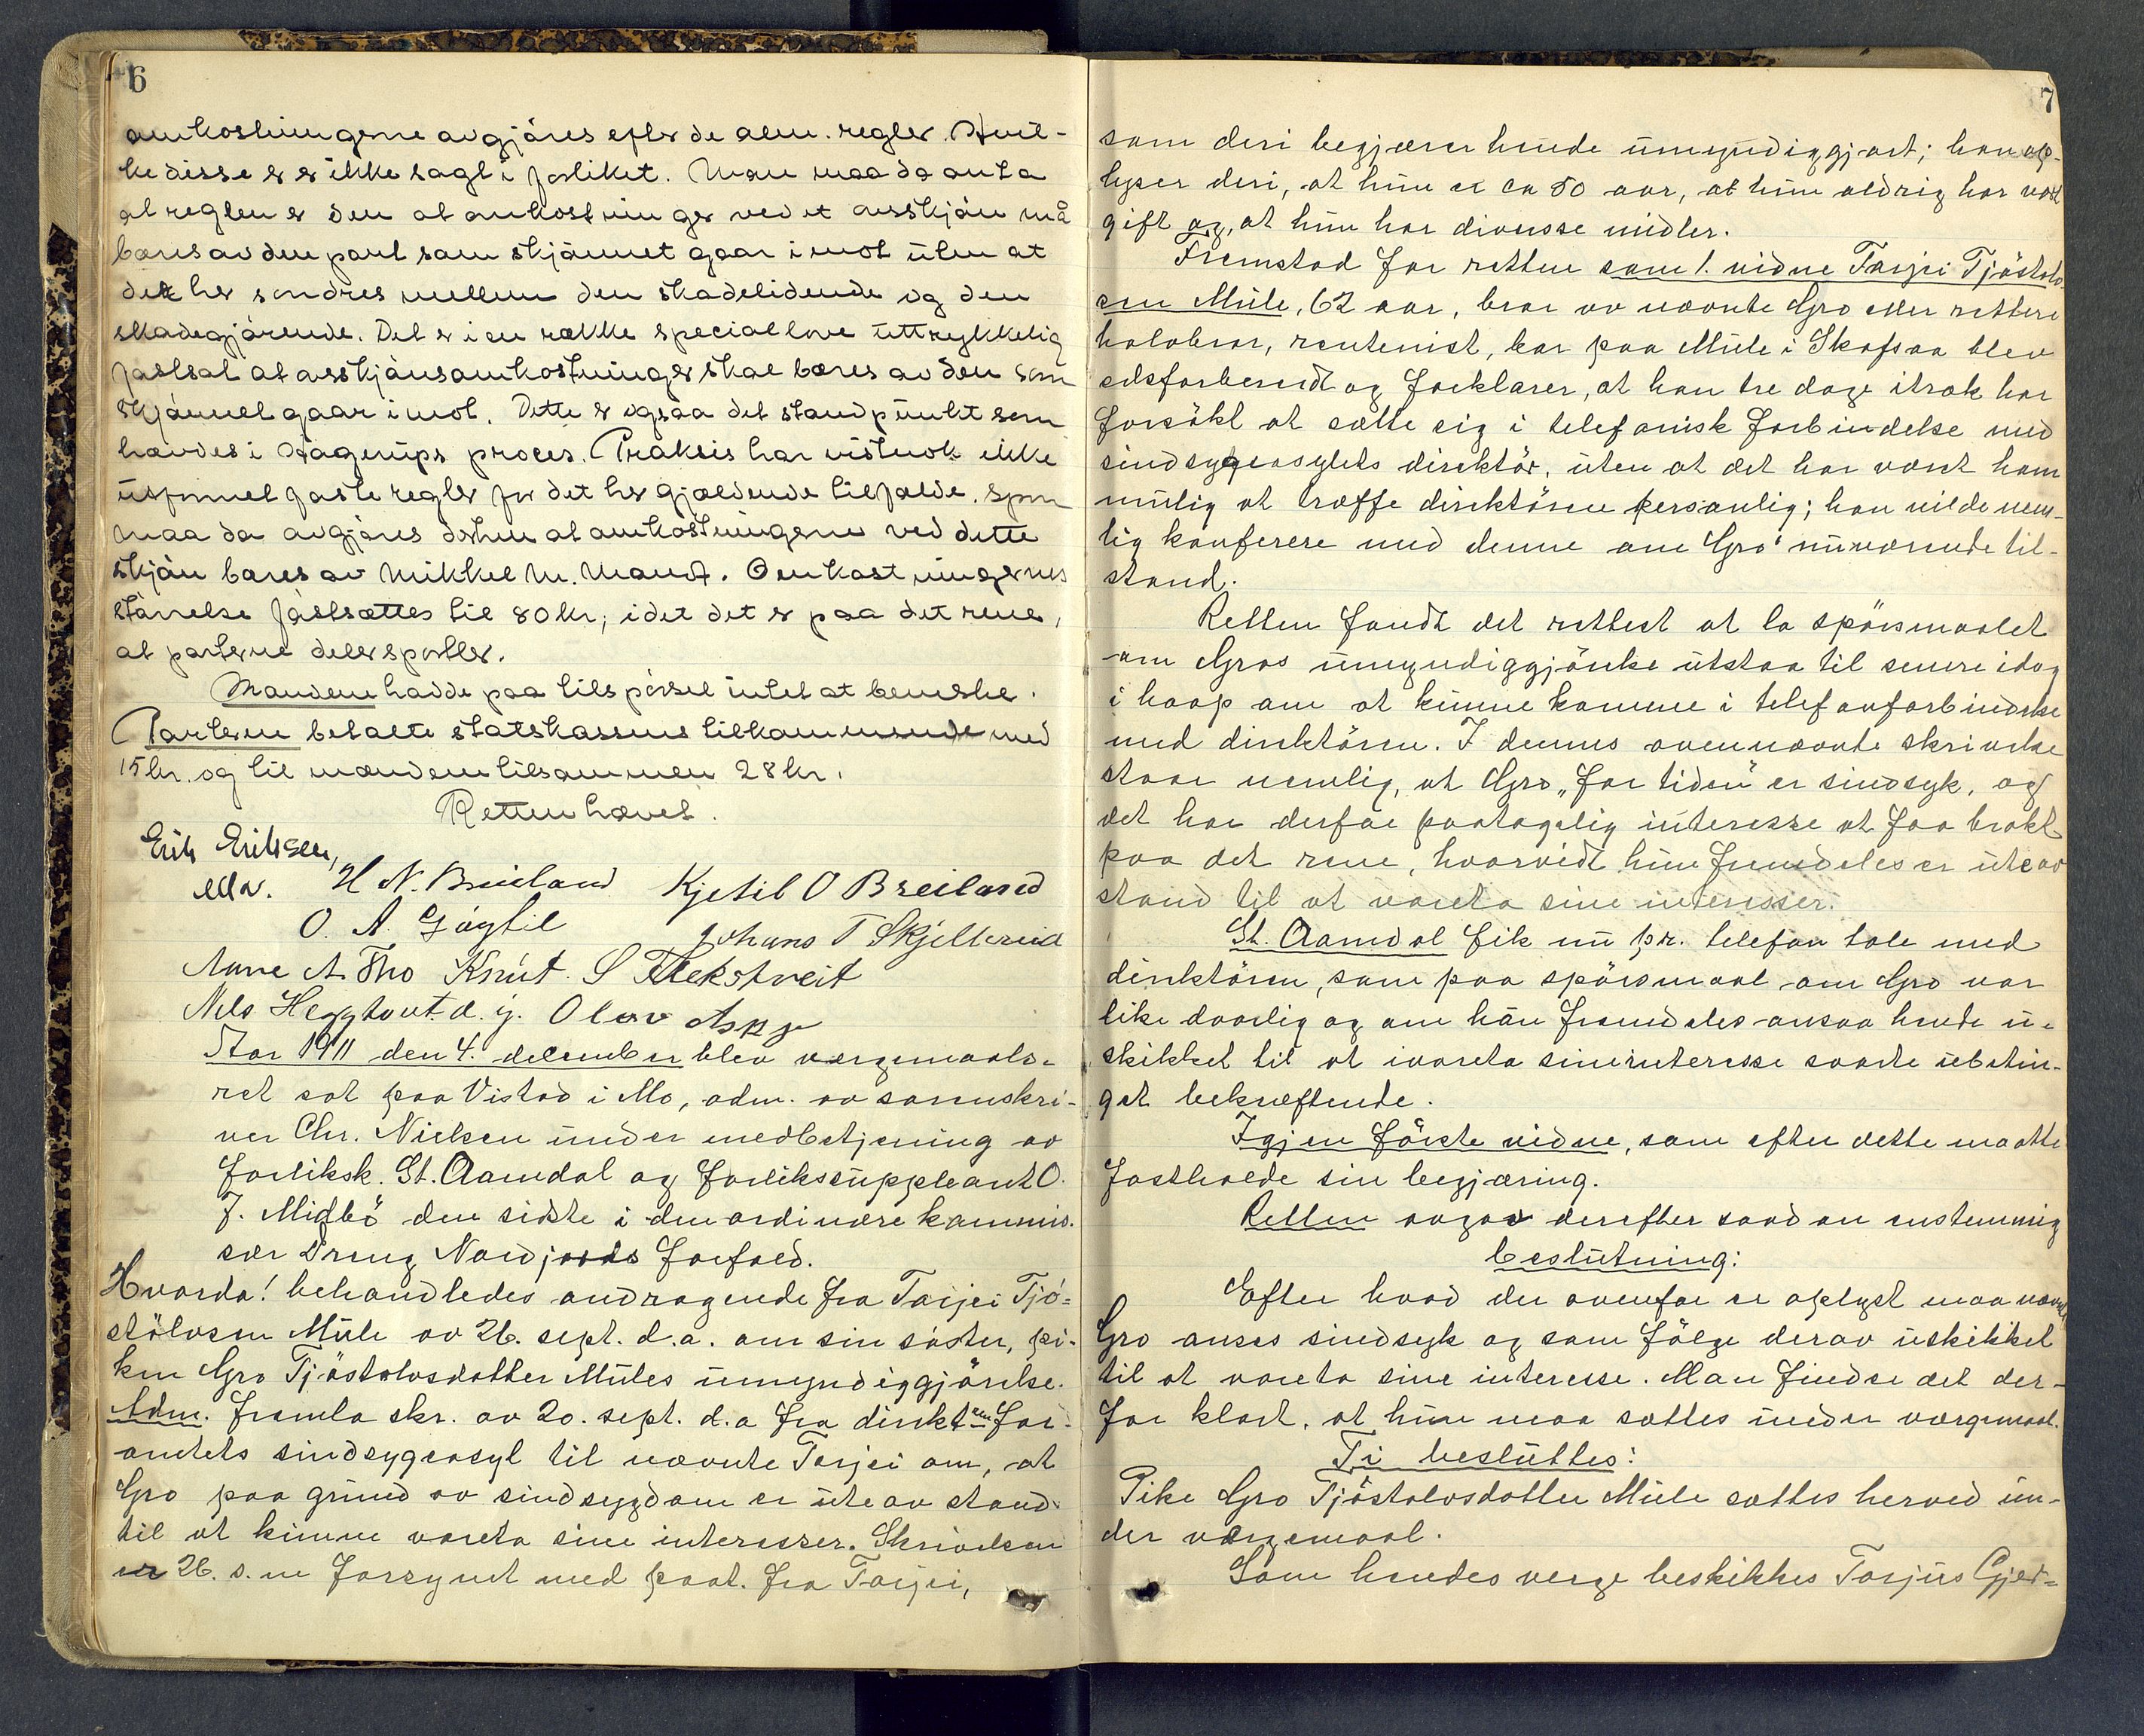 6
omkostningerne avgjöres efter de alm. regler. Hvil-
ke disse er er ikke sagt i forliket. Man maa da anta
at reglen er den at omkostninger ved et avsskjön må
bæres av den part som skjönnet gaar imot uten at
det her sondres mellem den skadelidende og den
skadegjörende. Det er i en række speciallove uttrykkelig
fastsat at avsskjönsomkostninger skal bæres av den som
skjönnet gaar imot. Dette er ogsaa det standpunkt som
hævdes i Hagerups proces. Praksis har vistnok ikke
utformet faste regler for det her gjældende tilfælde. Spm
maa da avgjöres derhen at omkostningerne ved dette
skjön bæres av Mikkel M. Mandt. Omkostningernes
störrelse fastsættes til 80 kr, idet det er paa det rene,
at parterne deler sportler.
Mændene hadde paa tilspörsel intet at bemerke.
Parterne betalte statskassens tilkommende med
15 kr. og til mændene tilsammen 28 kr.
Retten hævet.
Erik Eriksen,
edv. H N. Breiland Kjetil O Breiland
O. A. Göytil Johans T Skjelbreid
Anne A. Tho Knut S Flekstveit
Nils Heggtveit d. y. Olav Aspe
Aar 1911 den 4. december blev vergemaals-
ret sat paa Vistad i Mo, adm. av sorenskri-
ver Chr. Nielsen under medbetjening av
forliksk. St. Aamdal og forlikssuppleant O.
J. Midbö den sidste i den ordinære kommis.
sær Dreng Nordjords forfald.
Hvorda! behandledes andragende fra Tarjei Tjö-
stölvsen Mule av 26. sept. d.a. om sin söster, pi-
ken Gro Tjöstolvsdotter Mules umyndiggjörelse.
Adm. fremla skr. av 20. sept. d.a fra direktøren for
amtets sindsygeasyl til nævnte Tarjei om, at
Gro paa grund av sindsygdom er ute av stand
til at kunne vareta sine interesser. Skrivelsen
er 26. s.m forsynt med paat. fra Tarjei,
7
som deri begjærer hende umyndiggjort; han op-
lyser deri, at hun er ca 50 aar, at hun aldrig har vært
gift og, at hun har diverse midler.
Fremstod for retten som 1. vidne Tarjei Tjöstolv-
sen Mule, 62 aar, bror av nævnte Gro eller rettere
halvbror, rentenist, bor paa Mule i Skafsaa blev
edsforberedt og forklarer, at han tre dage itræk har
forsökt at sætte sig i telefonisk forbindelse med
sindsygeasylets direktör, uten at det har været ham
mulig at træffe direktören personlig; han vilde nem-
lig konferere med denne om Gro's nuværende til-
stand.
Retten fandt det rettest at la spörsmaalet
om Gros umyndiggjörelse utstaa til senere idag
i haap om at kunne komme i telefonforbindelse
med direktören. I dennes ovennævnte skrivelse
staar nemlig, at Gro "for tiden" er sindsyk, og
det har derfor paatagelig interesse at faa brakt
paa det rene, hvorvidt hun fremdeles er ute av
stand til at vareta sine interesser.
St. Aamdal fik nu pr. telefon tale med
direktören, som paa spörsmaal om Gro var
like daarlig og om han fremdeles ansaa hende u-
skikket til at ivareta sine interesse svarte ubetin-
get bekræftende.
Igjen förste vidne, som efter dette maatte
fastholde sin begjæring.
Retten avgav derefter saadan enstemmig
beslutning:
Efter hvad der ovenfor er oplyst maa nævnte
Gro anses sindsyk og som fölge derav uskikket
til at vareta sine interesse. Man finder det der-
for klart, at hun maa sættes under værgemaal.
Ti besluttes:
Pike Gro Tjöstolvsdotter Mule sættes herved un-
der værgemaal.
Som hendes verge beskikkes Tarjus Gjer-